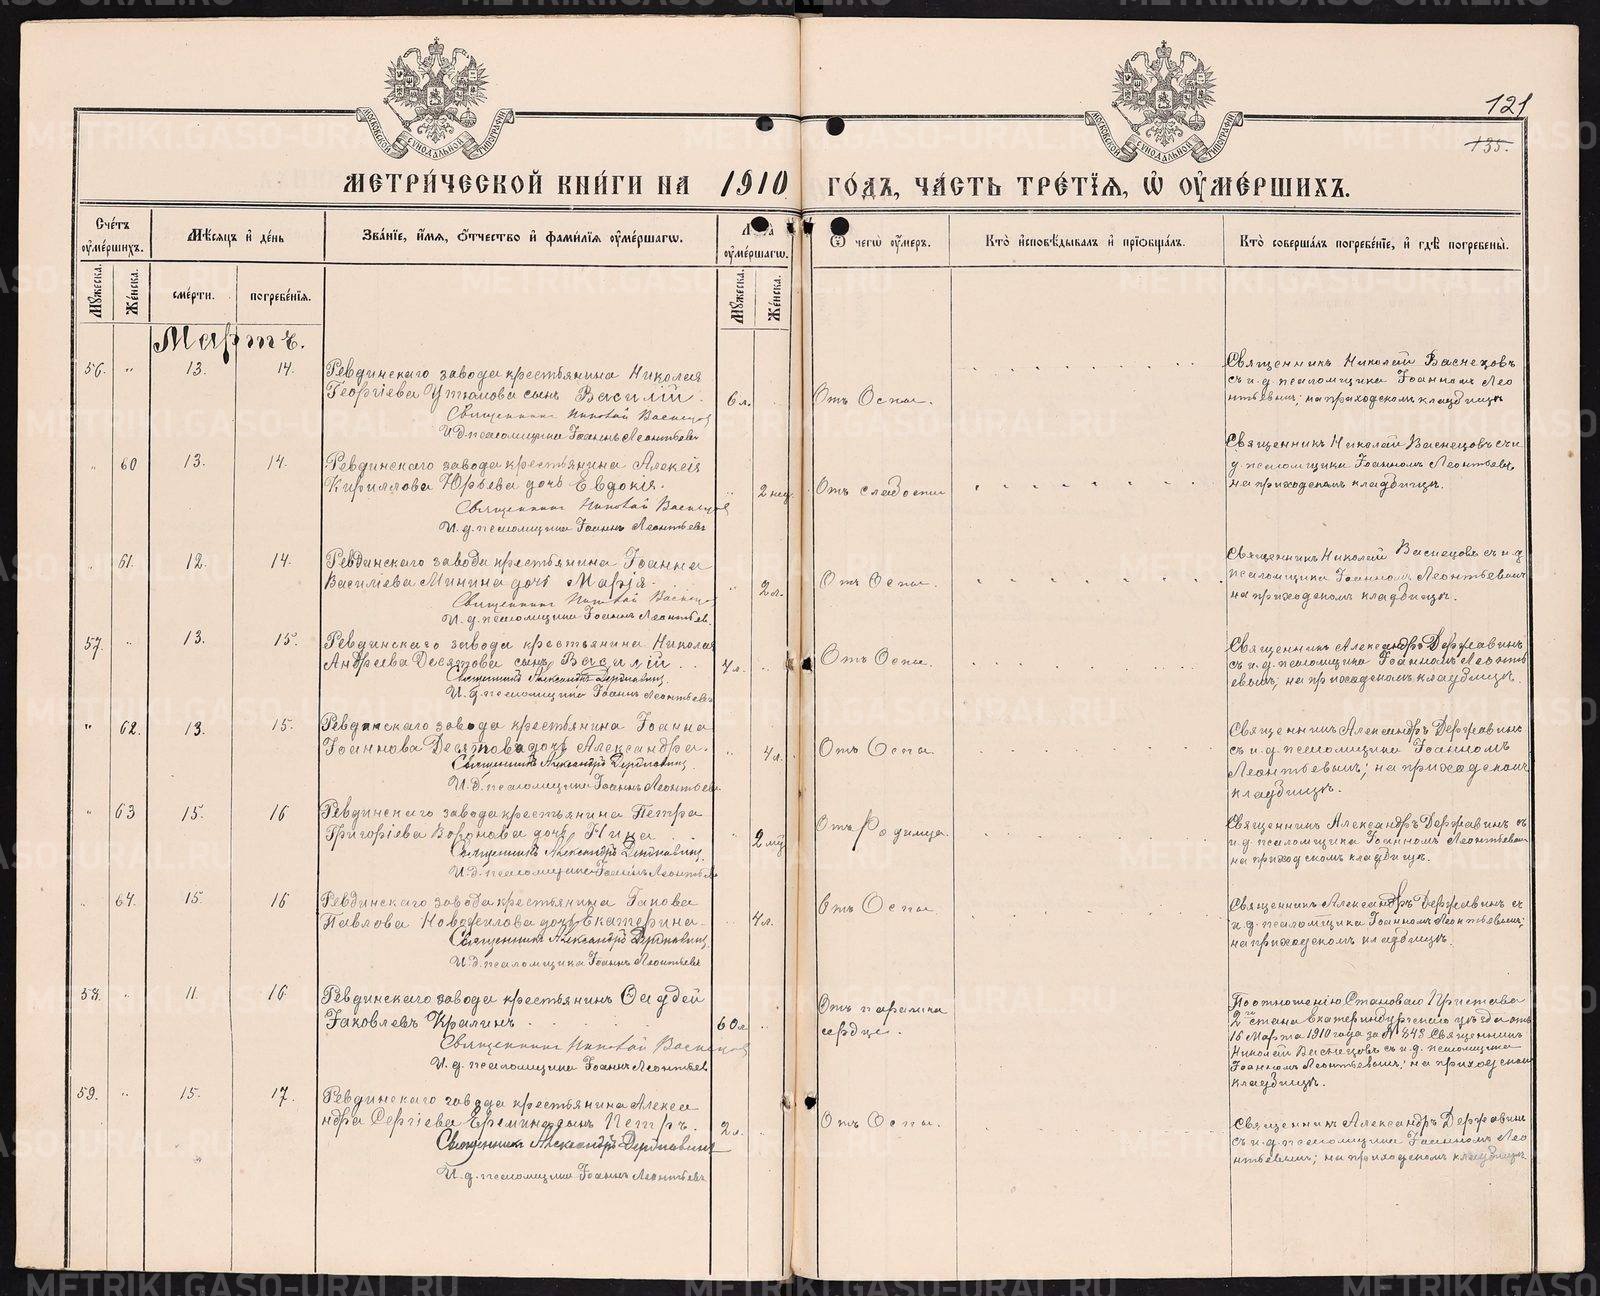 121
135.
МЕТРИЧЕСКОЙ КНИГИ НА 1910 ГОДЪ, ЧАСТЬ ТРЕТІЯ, Ѡ ОУМЕРШИХЪ.
Счетъ оумершихъ.
Мѣсяцъ и день
Званіе, имя, отчество и фамилія оумершагѡ.
Лѣта оумершагѡ.
Ѿ чегѡ оумеръ.
Кто исповѣдывалъ и пріобщалъ.
Кто совершалъ погребеніе, и гдѣ погребены.
Мужеска.
Женска.
смерти.
погребенія.
Мужеска.
Женска.
Мартъ.
56. " 13. 14. Ревдинскаго завода крестьянина Николая
Георгіева Утюмова сынъ Василій. 6 л. Отъ Оспы.
Священникъ Николай Васнецовъ
И.д. псаломщика Іоаннъ Леонтьевъ
Священникъ Николай Васнецовъ
съ и.д. псаломщика Іоанномъ Лео
нтьевымъ; на приходскомъ кладбищѣ
" 60 13. 14. Ревдинскаго завода крестьянина Алексія
Кириллова Юрьева дочь Евдокія. " 2 нед. Отъ слабости
Священникъ Николай Васнецовъ
И.д. псаломщика Іоаннъ Леонтьевъ
Священникъ Николай Васнецовъ съ и
д. псаломщика Іоанномъ Леонтьевы
на приходскомъ кладбищѣ.
" 61. 12. 14. Ревдинскаго завода крестьянина Іоанна
Васильева Минина дочь Марія. " 2 л. Отъ Оспы.
Священникъ Николай Васнецов
И.д. псаломщика Іоаннъ Леонтьев.
Священникъ Николай Васнецовъ съ и.д
псаломщика Іоанномъ Леонтьевымъ
на приходскомъ кладбищѣ.
57. " 13. 15. Ревдинскаго завода крестьянина Николая
Андреева Десятова сынъ Василій 4 л. Отъ Оспы.
Священникъ Александръ Державинъ.
И.д. псаломщика Іоаннъ Леонтьевъ
Священникъ Александръ Державинъ
съ и.д. псаломщика Іоанномъ Леонть
евымъ; на приходскомъ кладбищѣ.
" 62. 13. 15. Ревдинскаго завода крестьянина Іоанна
Іоаннова Десятова дочь Александра. " 4 л. Отъ Оспы
Священникъ Александръ Державинъ
И.д. псаломщика Іоаннъ Леонтьевъ
Священникъ Александръ Державинъ
съ и.д. псаломщика Іоанномъ
Леонтьевымъ; на приходскомъ
кладбищѣ.
" 63 15. 16 Ревдинскаго завода крестьянина Петра
Григоріева Воронова дочь Нина " 2 мц Отъ Родимца.
Священникъ Александръ Державинъ
И.д. псаломщика Іоаннъ Леонтьев
Священникъ Александръ Державинъ съ
и.д. псаломщика Іоанномъ Леонтьевым
на приходскомъ кладбищѣ.
" 64. 15. 16 Ревдинскаго завода крестьянина Іакова
Павлова дочь Екатерина. 4 л. Отъ Оспы
Священникъ Александръ Державинъ
И.д. псаломщика Іоаннъ Леонтьевъ
Священникъ Александръ Державинъ съ
и.д. псаломщика Іоанномъ Леонтьевымъ;
на приходскомъ кладбищѣ.
58. " 11. 16 Ревдинскаго завода крестьянинъ Фаддей
Іаковлевъ Кралинъ 60 л Отъ паралича
сердца.
Священникъ Николай Васнецовъ
И.д. псаломщика Іоаннъ Леонтьев
По отношенію Становаго Пристава
2го стана Екатеринбургскаго уѣзда отъ
15 Марта 1910 года за № 843 Священникъ
Николай Васнецовъ съ и.д. псаломщика
Іоанномъ Леонтьевымъ; на приходскомъ
кладбищѣ.
59. " 15. 17. Ревдинскаго завода крестьянина Алекса
ндра Сергіева Еремина сынъ Петръ. 2 л. Отъ Оспы.
Священникъ Александръ Державинъ
И.д. псаломщика Іоаннъ Леонтьевъ
Священникъ Александръ Державинъ
съ и.д. псаломщика Іоанномъ Лео
нтьевымъ; на приходскомъ кладбищѣ
METRIKI.GASO-URAL.RU